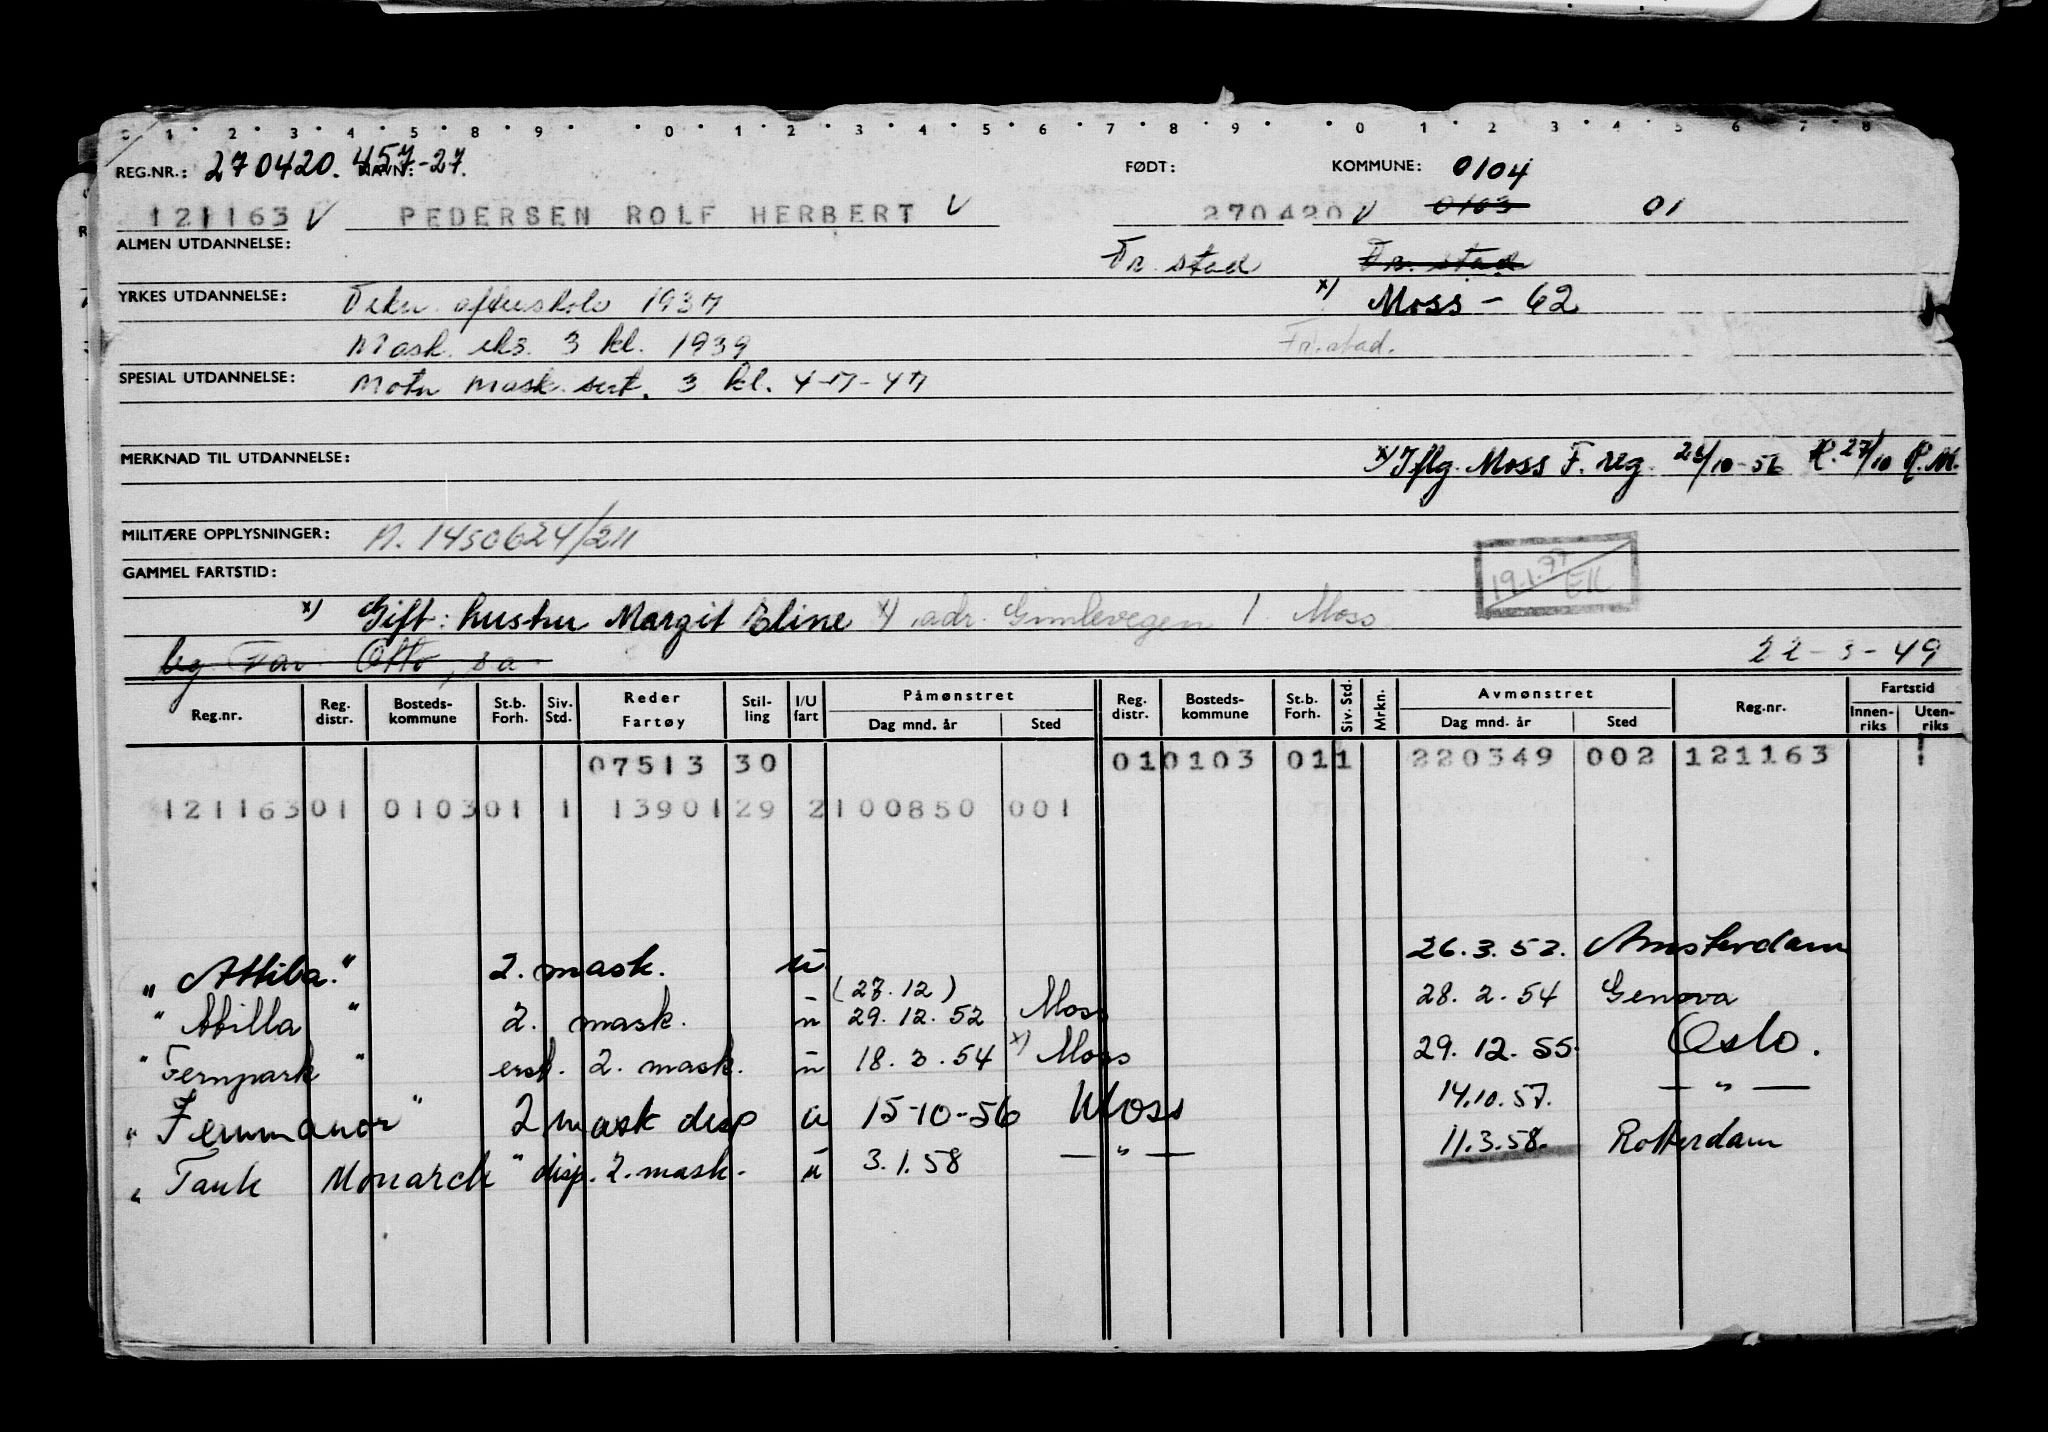 0 1 2 3 4 5 8 9 0 1 2 3 4 5 6 7 8 9 0 1 2 3 4 5 6 7 8
REG.NR.: 270420. 457-27. FØDT: KOMMUNE: 0104
121163 V PEDERSEN ROLF HERBERT V 270420 V 0103 01
ALMEN UTDANNELSE: Fr. stad Fr. stad
YRKES UTDANNELSE: Tekn. aftenskole 1937 x) Moss - 62
Mask. eks. 3 kl. 1939 Fr.stad.
SPESIAL UTDANNELSE: Motor mask. sert. 3 kl. 4-7-47
MERKNAD TIL UTDANNELSE: x) Iflg. Moss F. reg. 23/10-56 K. 27/10 R.M.
MILITÆRE OPPLYSNINGER: N. 1450624/211
19.1.77 EK
GAMMEL FARTSTID:
x) Gift: hustru Margit Eline x) adr. Gimlevegen 1 Moss
bg Far Otto, s a 22-3-49
Reg.nr. Reg. distr. Bosteds-kommune St.b. Forh. Siv. Std. Reder Fartøy Stil-ling I/U fart Påmønstret Dag mnd. år Sted Reg. distr. Bosteds-kommune St.b. Forh. Siv. Std. Mrkn. Avmønstret Dag mnd. år Sted Reg.nr. Fartstid Innen-riks Uten-riks
07513 30 01 0103 01 1 220349 002 121163 1
121163 01 0103 01 1 13901 29 2 100850 001
"Attila." 2. mask. u 26.3.52. Amsterdam
"Atilla" 2. mask. u (27.12) 29.12.52 Moss 28.2.54 Genova
"Fernpark" ersk. 2. mask. u 18.3.54 x) Moss 29.12.55. Oslo.
"Fernmanor" 2 mask disp u 15-10-56 Moss 14.10.57. — " —
"Tank Monarch" disp. 2. mask. u 3.1.58 — " — 11.3.58. Rotterdam